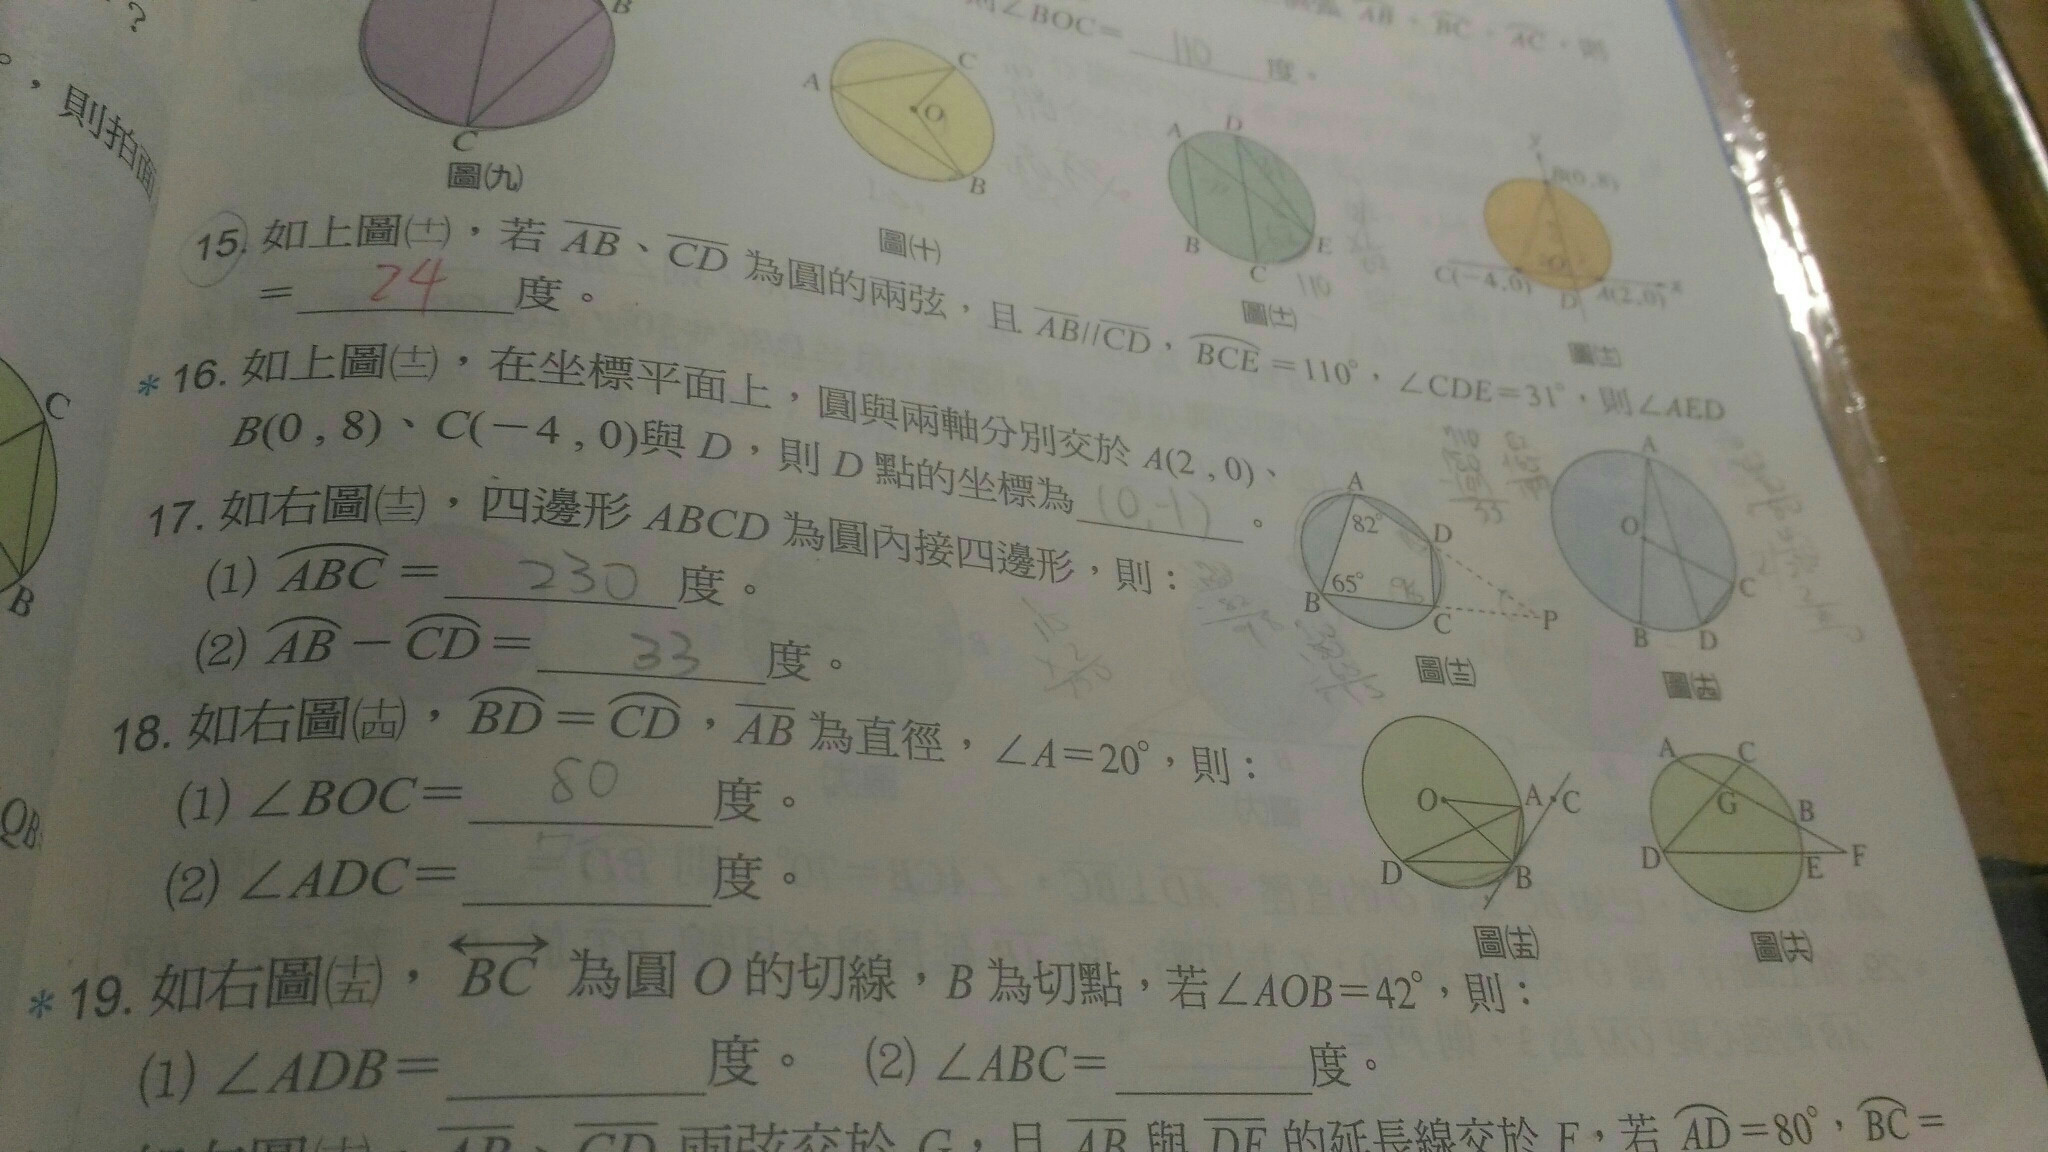 ?
B
C
圖(九)
則∠BOC= 110 度。
A C O B
圖(十)
A D B C E
110
圖(十一)
y
B(0,8)
C(-4,0) O A(2,0) x
D
圖(十二)
，則拍面
15. 如上圖(十一)，若 AB、CD 為圓的兩弦，且 AB//CD，BCE=110°，∠CDE=31°，則∠AED
= 24 度。
*16. 如上圖(十二)，在坐標平面上，圓與兩軸分別交於 A(2,0)、
B(0,8)、C(-4,0)與 D，則 D 點的坐標為 (0,-1) 。
17. 如右圖(十三)，四邊形 ABCD 為圓內接四邊形，則：
(1) ABC= 230 度。
(2) AB-CD= 33 度。
A 82° D
B 65° 98 C P
圖(十三)
A O C B D
圖(十四)
18. 如右圖(十四)，BD=CD，AB 為直徑，∠A=20°，則：
(1) ∠BOC= 80 度。
(2) ∠ADC= 度。
O A C D B
圖(十五)
A C G B D E F
圖(十六)
*19. 如右圖(十五)，BC 為圓 O 的切線，B 為切點，若∠AOB=42°，則：
(1) ∠ADB= 度。 (2) ∠ABC= 度。
如右圖(十六)，AB、CD 兩弦交於 G，且 AB 與 DE 的延長線交於 F，若 AD=80°，BC=
C
B